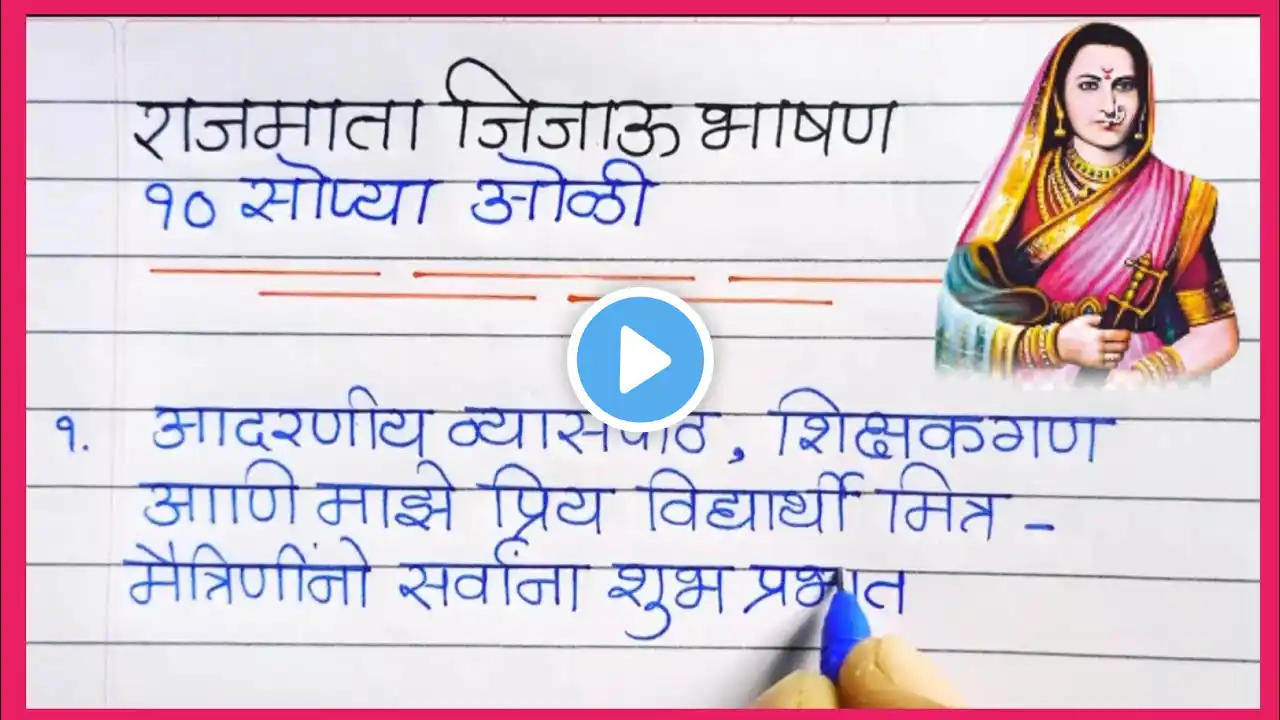 राजमाता जिजाऊ भाषण
१० सोप्या ओळी
१. आदरणीय व्यासपीठ, शिक्षकगण
आणि माझे प्रिय विद्यार्थी मित्र -
मैत्रिणींनो सर्वांना शुभ प्रभात